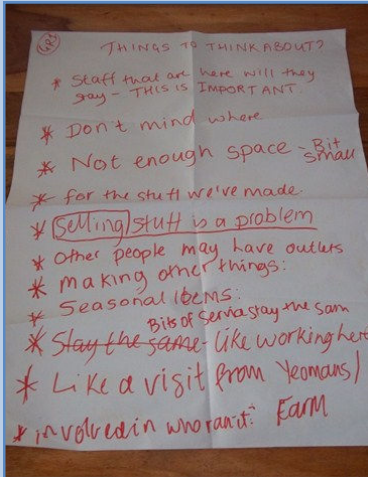 THINGS TO THINK ABOUT?
* Staff that are here will they
stay - THIS IS IMPORTANT.
* Don't mind where
* Not enough space - Bit
small
* for the stuff we've made.
* Selling stuff is a problem
* Other people may have outlets
* Making other things:
* Seasonal Items:
Bits of Service stay the sam
* Stay the same - like working here
* Like a visit from Yeomans/
Farm
* involved in who ran it: